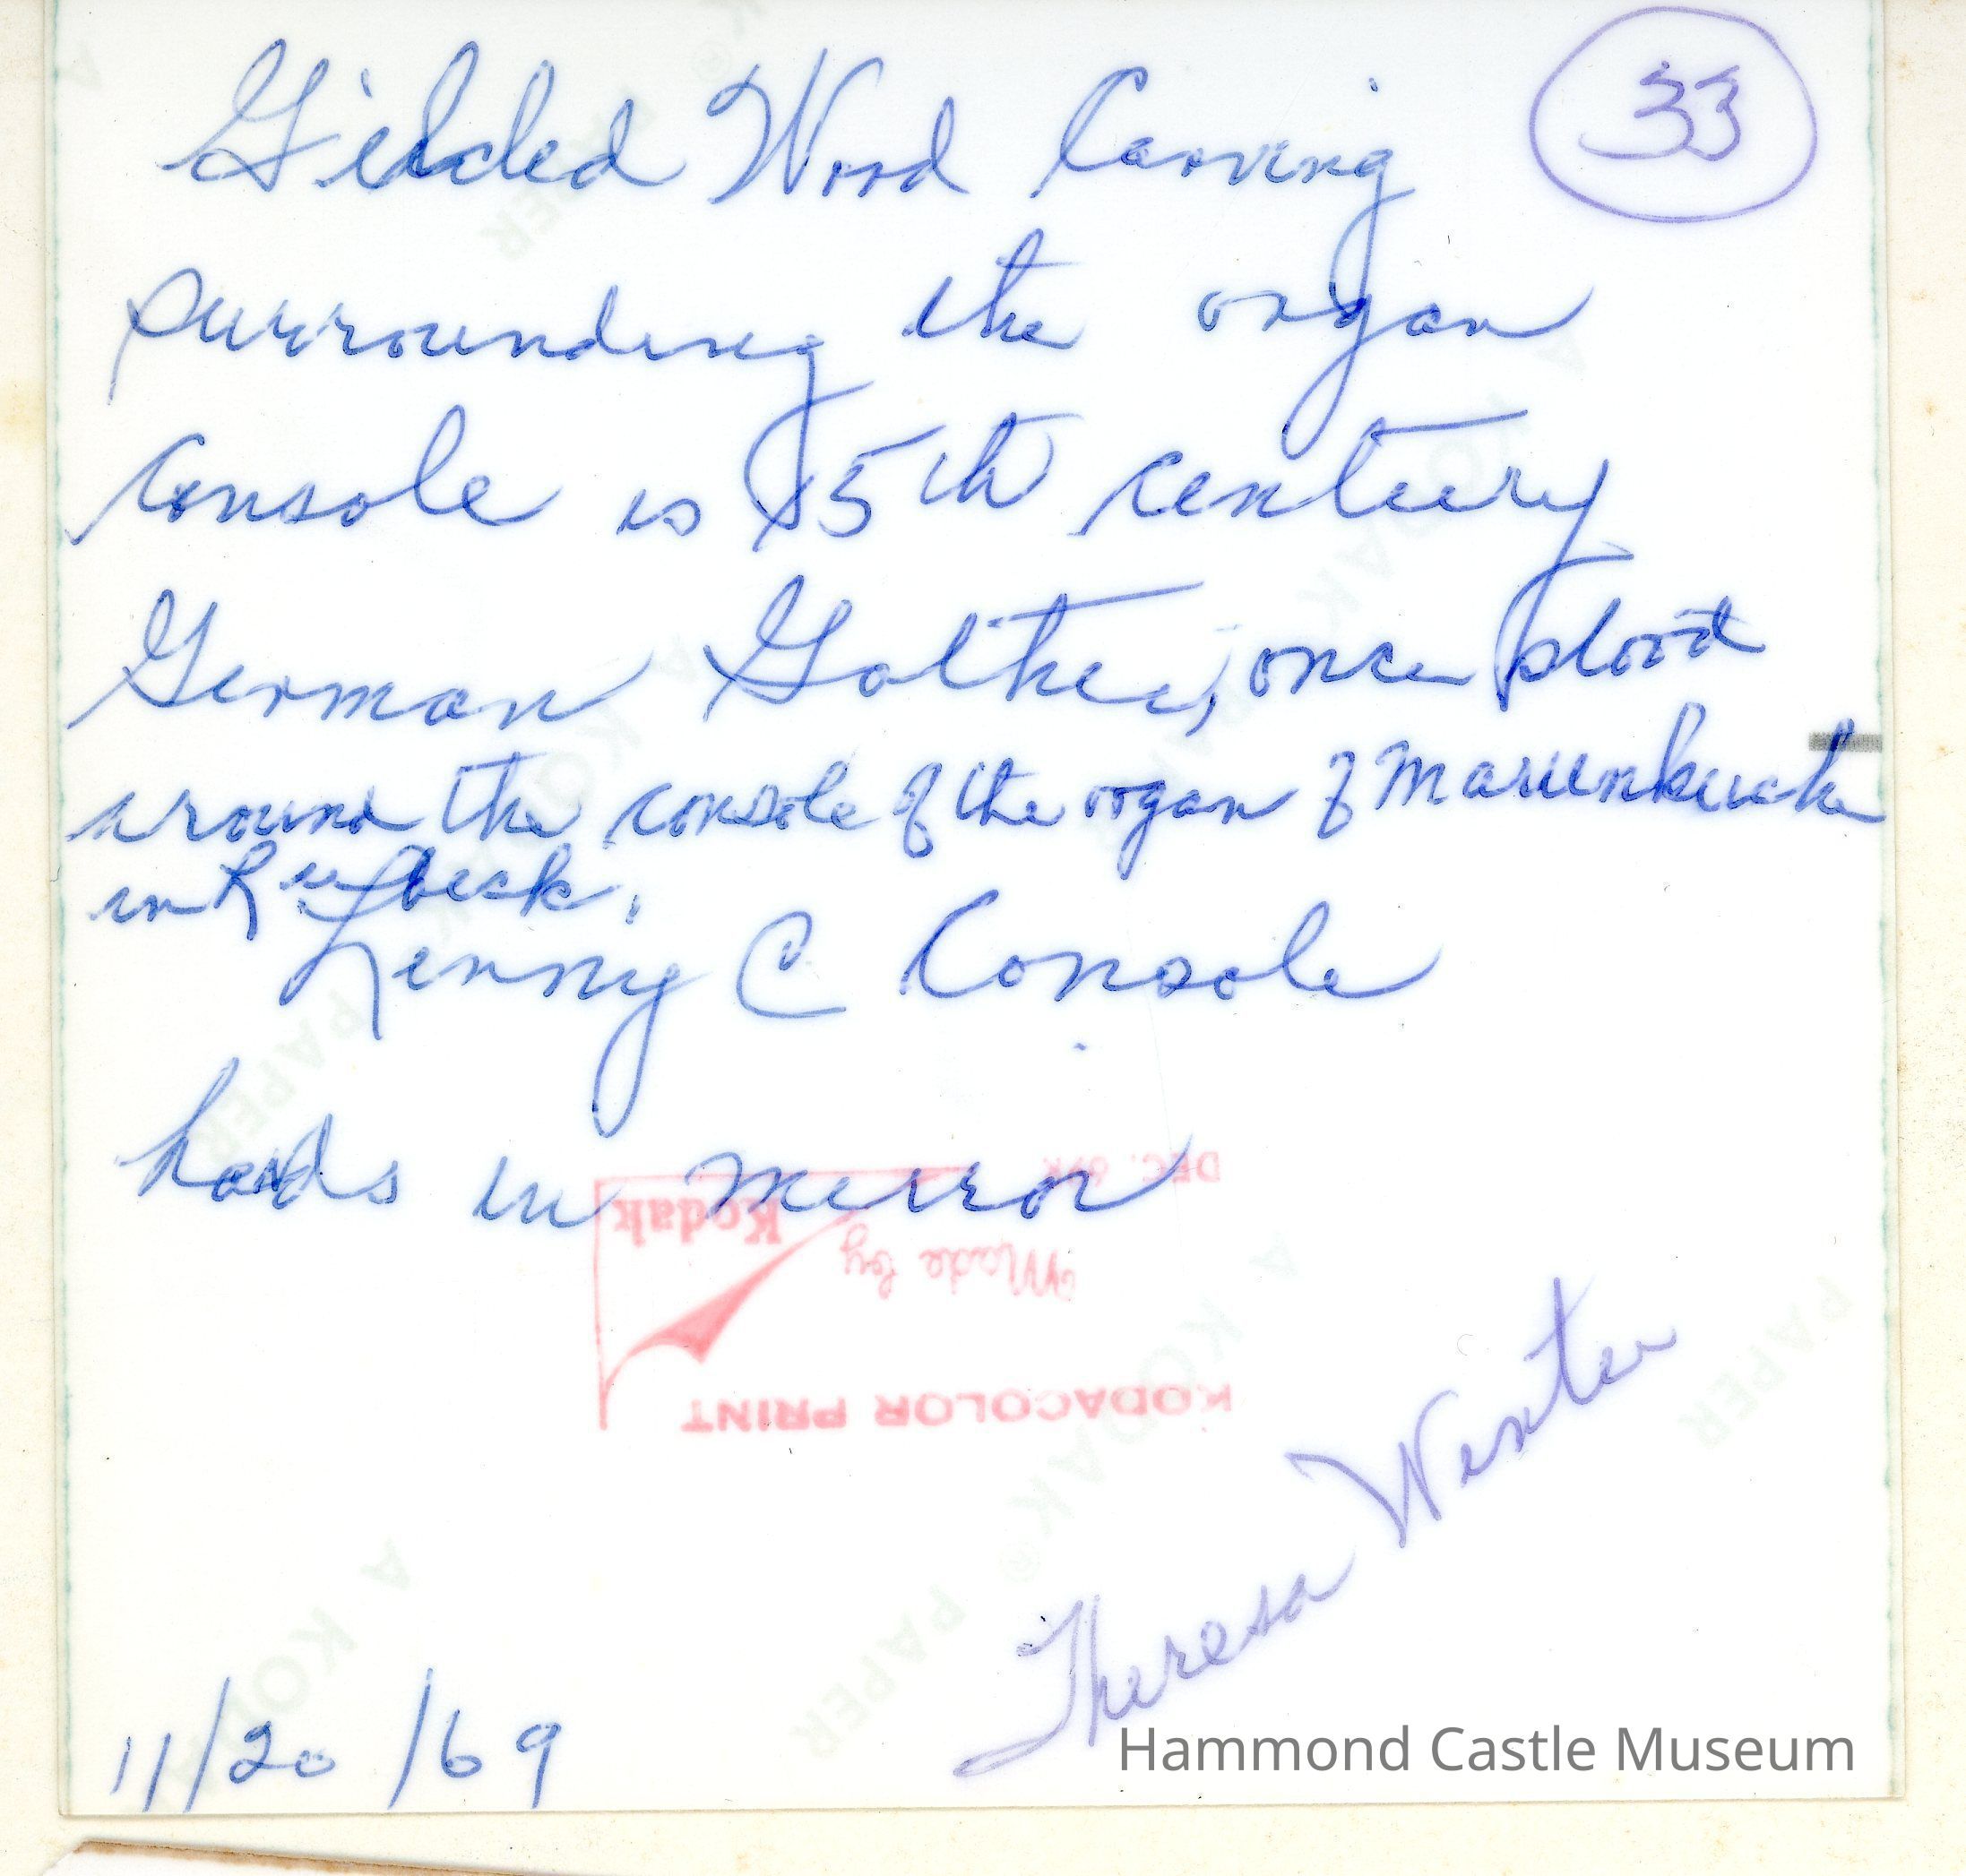 33
Gilded Wood Carving
surrounding the organ
console is 15th century
German Gothic, once stood
around the console of the organ of Marienkirche
in Luebeck.
Lenny C Console
hands in mirror
DEC. 69K
Kodak
Made by
KODACOLOR PRINT
Theresa Winter
11/20/69
Hammond Castle Museum
A KODAK® PAPER